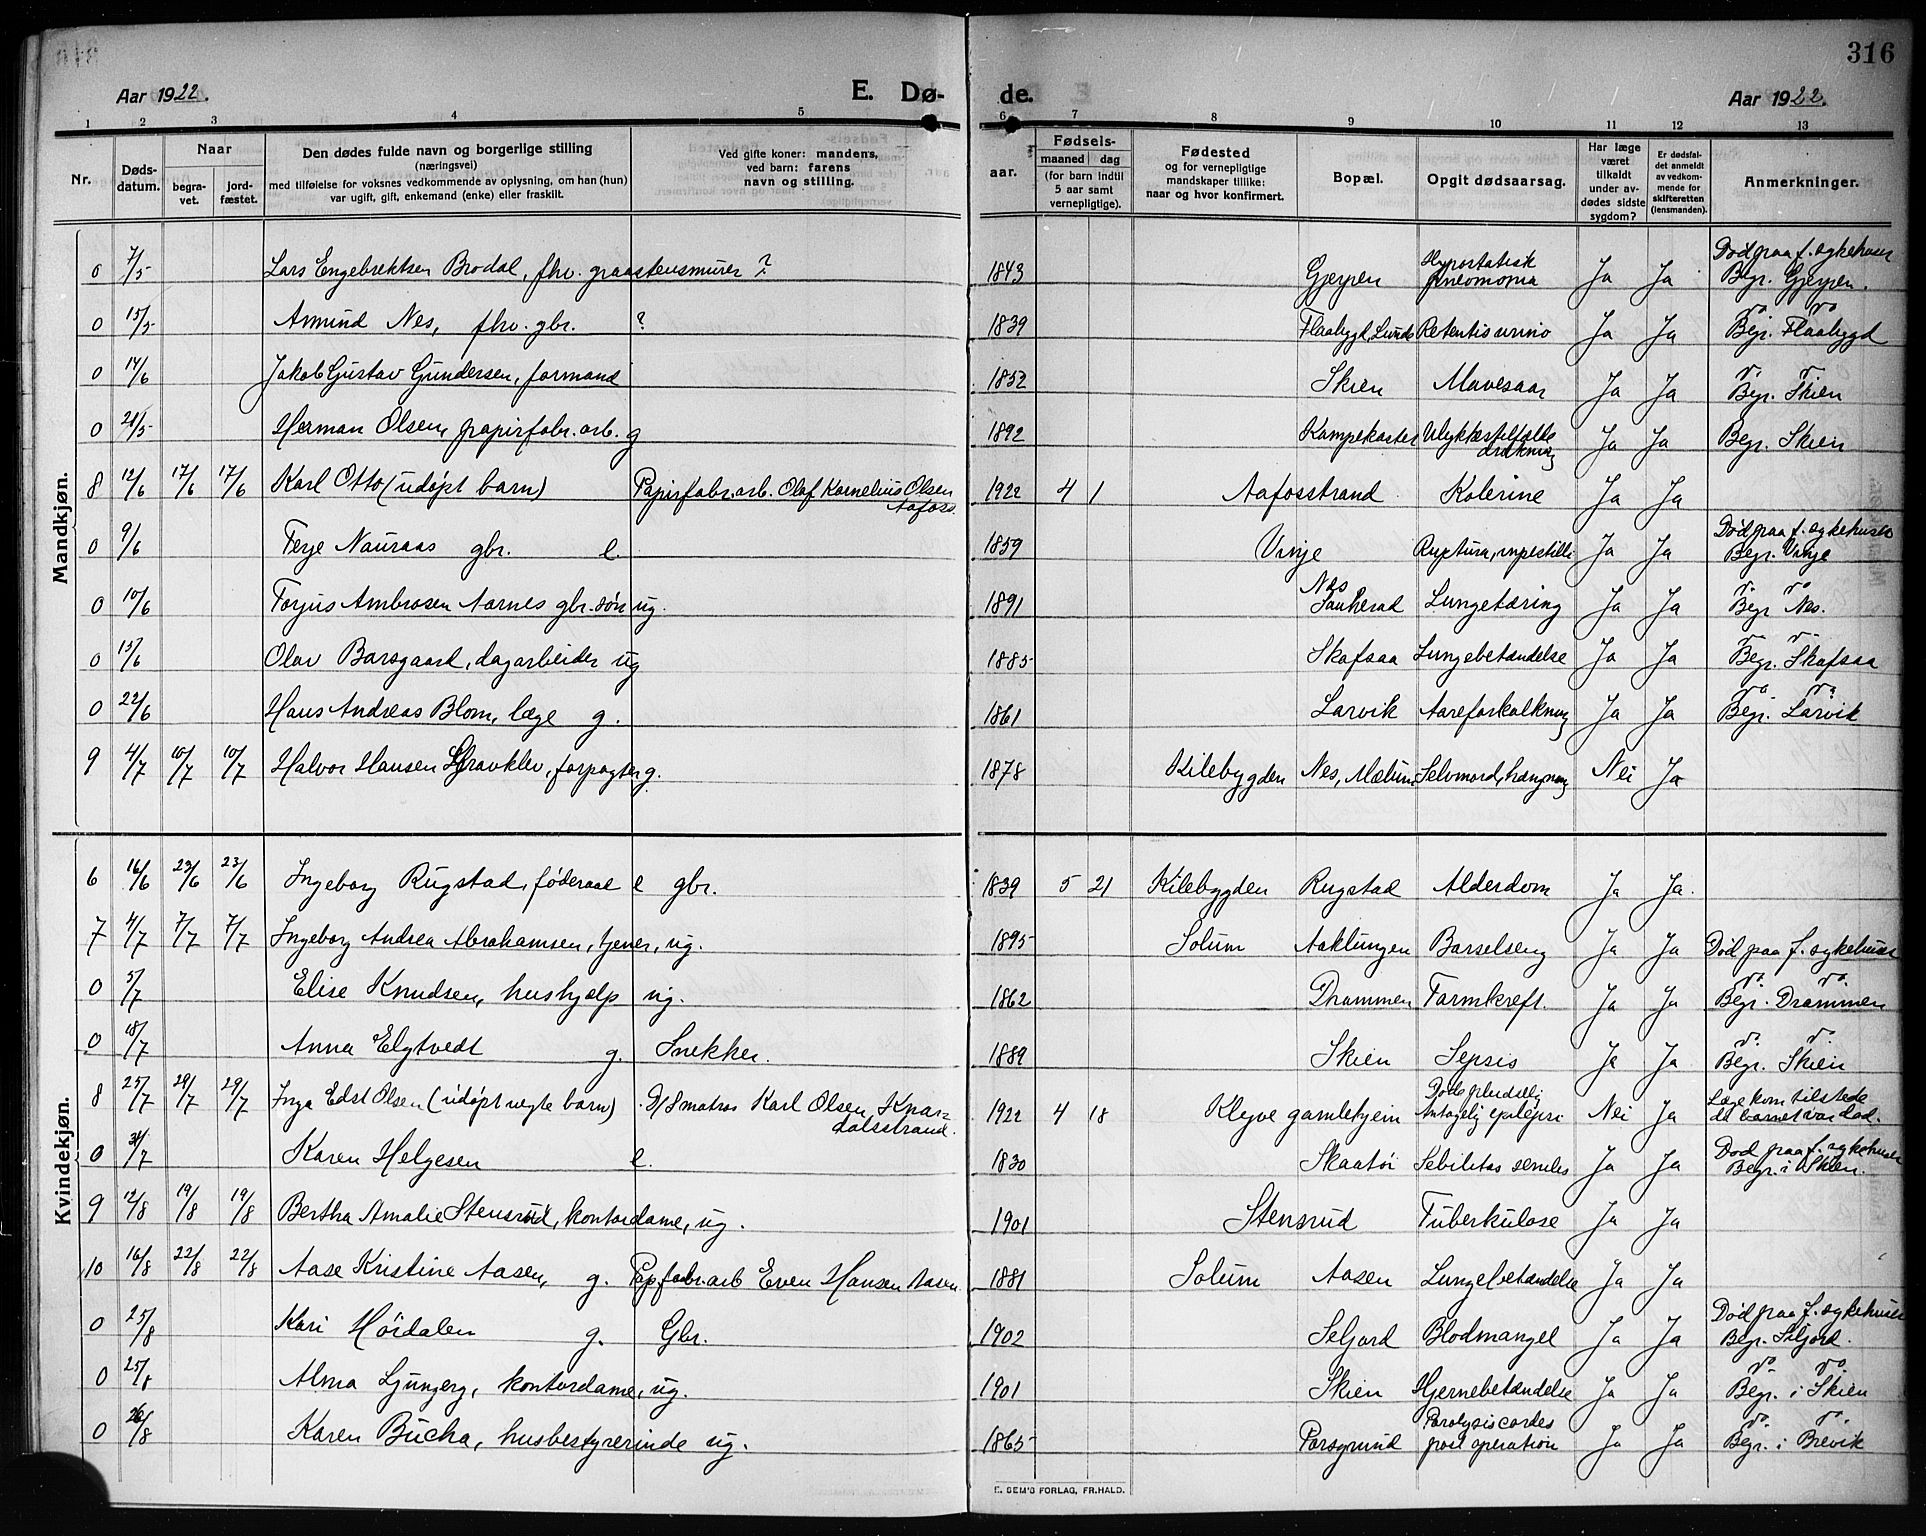 316
Aar 1922. E. Dø- de. Aar 1922.
1 2 3 4 5 6 7 8 9 10 11 12 13
Nr.
Døds-
datum.
Naar
begra-
vet.
jord-
fæstet.
Den dødes fulde navn og borgerlige stilling
(næringsvei)
med tilføielse for voksnes vedkommende av oplysning, om han (hun)
var ugift, gift, enkemand (enke) eller fraskilt.
Ved gifte koner: mandens,
ved barn: farens
navn og stilling.
aar.
Fødsels-
maaned dag
(for barn indtil
5 aar samt
vernepligtige).
Fødested
og for vernepligtige
mandskaper tillike:
naar og hvor konfirmert.
Bopæl.
Opgit dødsaarsag.
Har læge
været
tilkaldt
under av-
dødes sidste
sygdom?
Er dødsfal-
det anmeldt
av vedkom-
mende for
skifteretten
(lensmanden).
Anmerkninger.
Mandkjøn.
0 7/5 Lars Engebrektsen Brodal, fhv. graastensmurer ? 1843 Gjerpen Hypostatisk pneumonia Ja Ja Død paa f. sykehuset Begr. Gjerpen.
0 15/5 Amund Nes, fhv. gbr. ? 1839 Flaabygd, Lunde Retentis urino Ja Ja do do Begr. Flaabygd
0 14/6 Jakob Gustav Gundersen, formand 1852 Skien Mavesaar Ja Ja do do Begr. Skien
0 21/5 Herman Olsen, papirfabr. arb. g 1892 Ulykkestilfælde drukning Ja Ja Begr. Skien
8 12/6 17/6 17/6 Karl Otto (udøpt barn) Papirfabr. arb. Olaf Kornelius Olsen Aafoss. 1922 4 1 Aafosstrand Kolerine Ja Ja
0 9/6 Terje Nauraas gbr. e. 1859 Vinje Ruptura, Ja Ja Død paa f. sykehuset Begr. Vinje
0 10/6 Torjus Ambrosen Aarnes gbr. søn ug. 1891 Nes Sauherad Lungetæring Ja Ja do do Begr. Nes.
0 15/6 Olav Barsgaard, dagarbeider ug 1885 Skafsaa Lungebetændelse Ja Ja do do Begr. Skafsaa
0 22/6 Hans Andreas Blom, læge g. 1861 Larvik Aareforkalkning Ja Ja do do Begr. Larvik
9 4/7 10/7 10/7 Halvor Hansen forpagter g. 1878 Kilebygden Nes, Mælum Selvmord, hængning Nei Ja
Kvindekjøn.
6 16/6 23/6 23/6 Ingeborg Rugstad, føderaad e gbr. 1839 5 21 Kilebygden Rugstad Alderdom Ja Ja.
7 4/7 7/7 7/7 Ingeborg Andrea Abrahamsen, tjener, ug. 1895 Solum Aaklungen Barselseng Ja Ja Død paa f. sykehuset
0 5/7 Elise Knudsen, hushjælp ug. 1862 Drammen Tarmkreft. Ja Ja do do Begr. Drammen
0 18/7 Anna Elgtvedt g. Snekker. 1889 Skien Sepsis Ja Ja do do Begr. Skien
8 25/7 29/7 29/7 Inga Olsen (udøpt uegte barn) D/S matros Karl Olsen, Knar- dalsstrand. 1922 4 18 Kleyve gamlehjem Døde pludselig Antagelig epilepsi Nei Ja Læge kom tilstede da barnet var død.
0 31/7 Karen Helgesen e. 1830 Skaatøi senilis Ja Ja Død paa f. sykehuset Begr. i Skien.
9 12/8 19/8 19/8 Bertha Amalie Stensrud, kontordame, ug. 1901 Stensrud Tuberkulose Ja Ja
10 16/8 22/8 22/8 Aase Kristine Aasen, g. Papfabr. arb Even Hansen Aasen 1881 Solum Aasen Lungebetændelse Ja Ja
0 25/8 Kari Hørdalen g. Gbr. 1902 Seljord Blodmangel Ja Ja Død paa f. sykehuset Begr. Seljord.
0 25/8 Alma Ljungerg, kontordame, ug. 1901 Skien Hjernebetændelse Ja Ja do do Begr. i Skien
0 26/8 Karen Bucha, husbestyrerinde ug. 1865 Porsgrund Paralysis cordis post operation Ja Ja do do Begr. i Brevik
E. SEM'S FORLAG, FR.HALD.